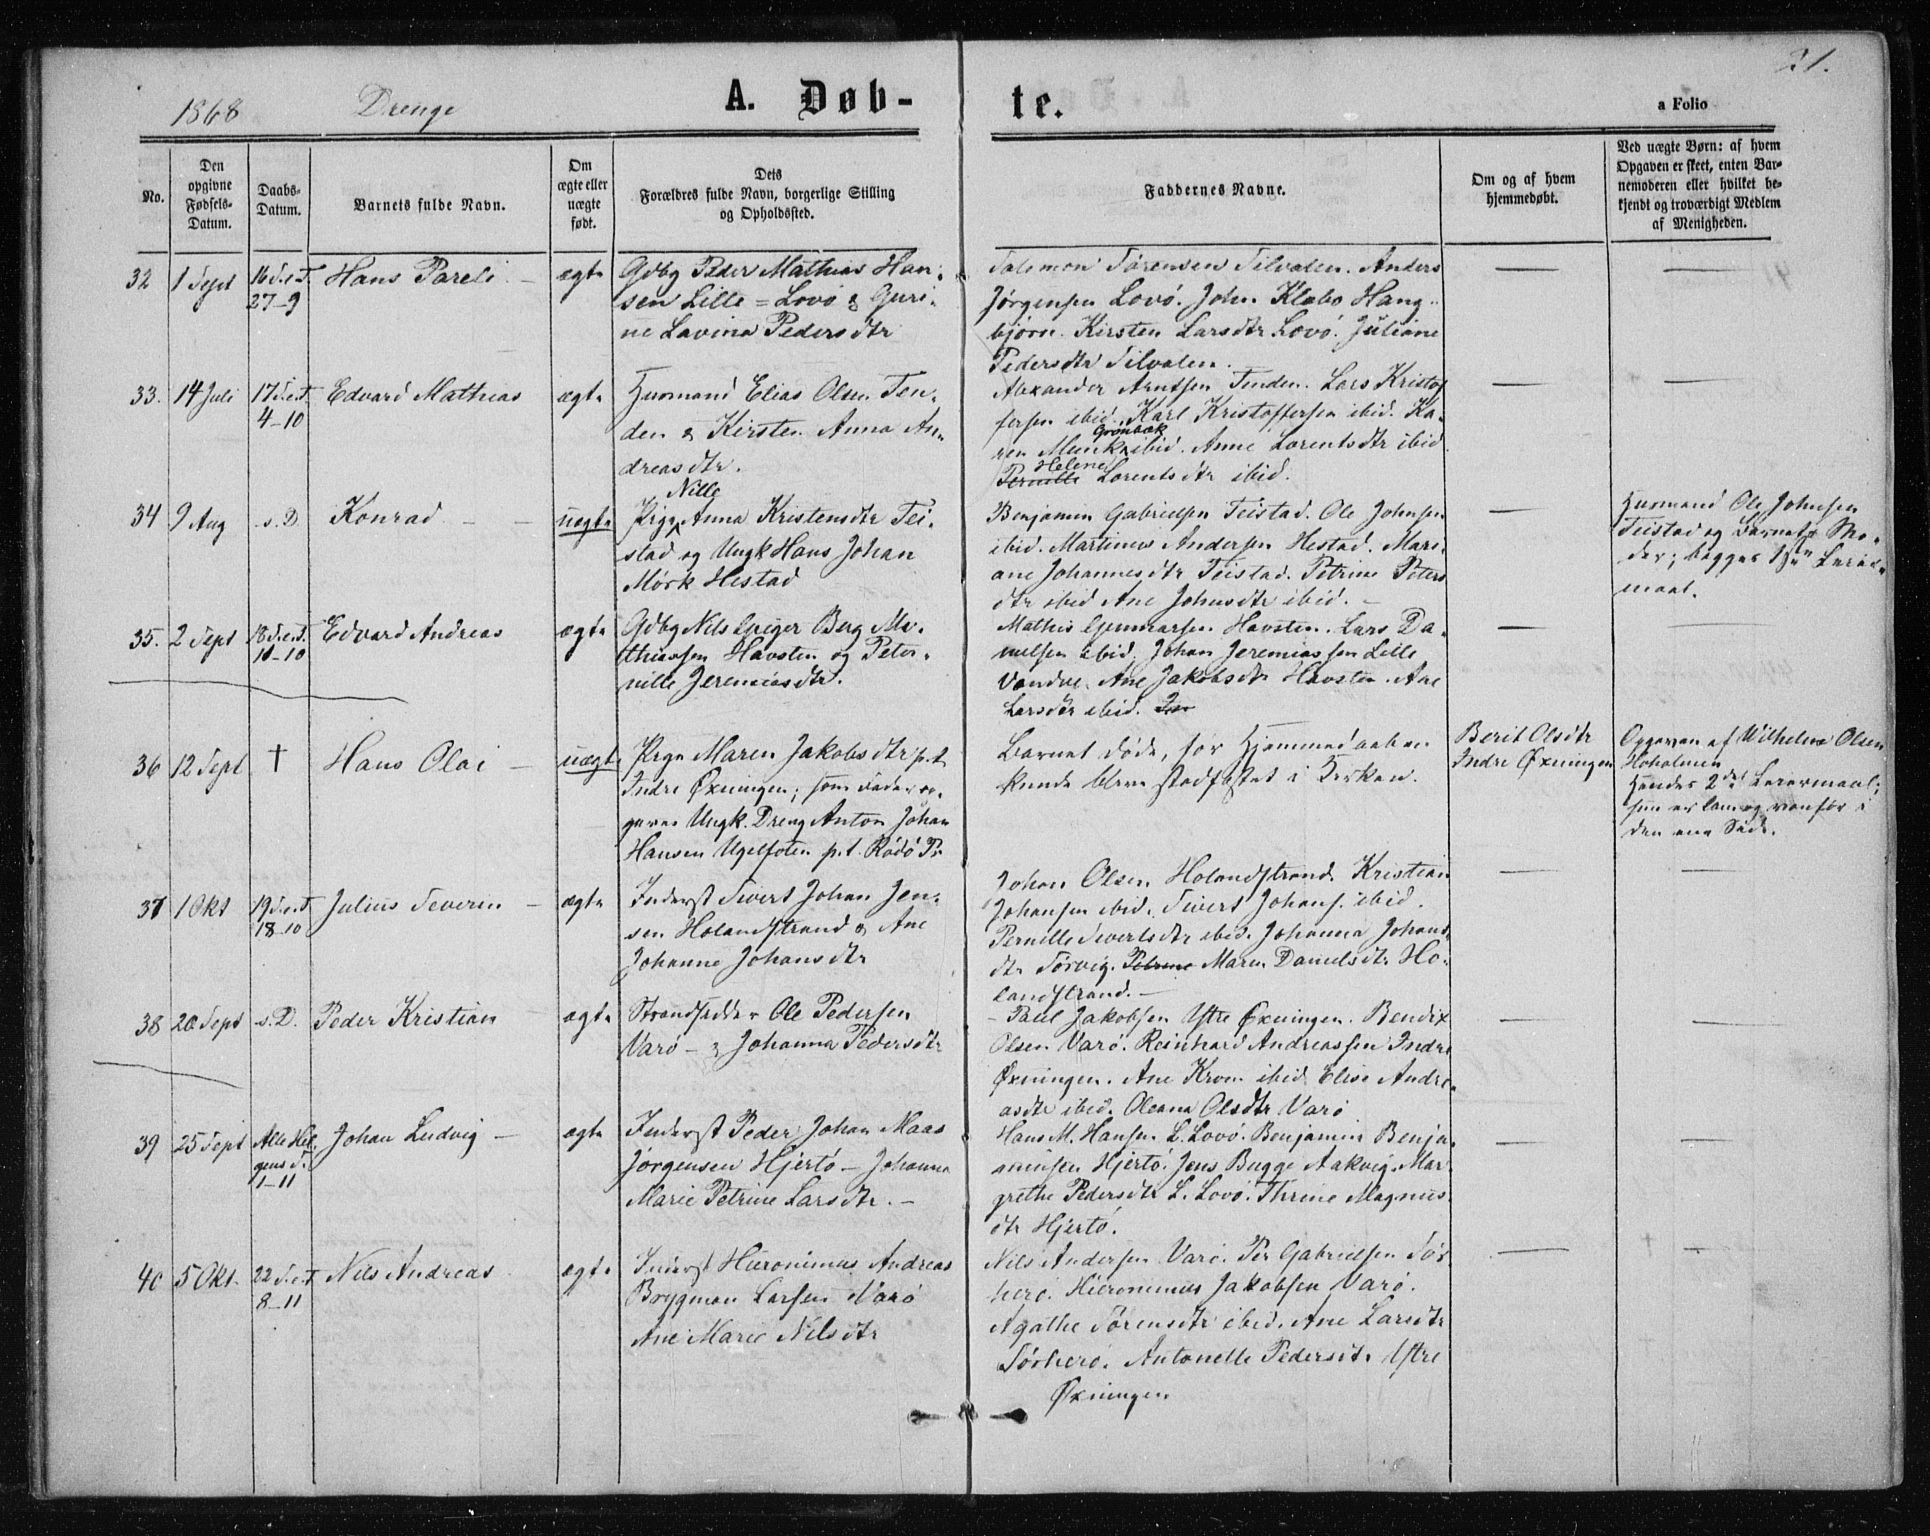 21.
1868 Drenge A. Døb- te. a Folio
No.
Den opgivne Fødsels-Datum.
Daabs-Datum.
Barnets fulde Navn.
Om ægte eller uægte født.
Dets Forældres fulde Navn, borgerlige Stilling og Opholdssted.
Faddernes Navne.
Om og af hvem hjemmedøbt.
Ved uægte Børn: af hvem Opgaven er skeet, enten Barnemoderen eller hvilket bekjendt og troværdigt Medlem af Menigheden.
32 1 Sept 16 S.e.T. 27-9 Hans Pareli – ægte
Gdbg Peder Mathias Han-
sen Lille = Lovö & Guri-
ne Lavina Pedersdtr
Salomon Sörensen Silvalen. Anders
Jörgensen Lovö. John Klabo Haug-
björn. Kirsten Larsdtr Lovö. Juliane
Pedersdtr Silvalen.
33. 14 Juli 17 S.e.T. 4-10 Edvard Mathias ægte
Husmand Elias Olsen Ten-
den & Kirsten Anna An-
dreasdtr.
Alexander Arntsen Tenden. Lars Kristof
fersen ibid. Karl Kristoffersen ibid. Ka-
ren Munk Grönbæk ibid. Anne Lorentsdtr ibid
Pernille Helene Lorentsdtr ibid.
34 9 Aug s.D. Konrad – – uægte
Pige Nille Anna Kristensdtr Tei-
stad og Ungk Hans Johan
Mörk Hestad
Benjamin Gabrielsen Teistad. Ole Johnsen
ibid. Martinus Andersen Hestad. Mari-
ane Johannesdtr Teistad. Petrine Peters
dtr ibid Ane Johnsdtr ibid. –
Husmand Ole Johnsen
Teistad og Barnets Mo-
der; begges 1ste Leier-
maal.
35. 2 Sept 18 S.e.T. 11-10 Edvard Andreas ægte
Gdbg Nils Berg Ma-
thiassen Havsten og Peter-
nille Jeremiasdtr.
Mathis Havsten. Lars Da-
nielsen ibid. Johan Jeremiassen Lille
Vandve. Ane Jakobsdtr Havsten. Ane
Larsdtr ibid.
36 12 Sept † Hans Olai – uægte
Pige Maren Jakobsdtr p.t.
Indre Öxningen; som Fader op-
gaves Ungk. Dreng Anton Johan
Hansen Ugelfoten p.t. Rödö Pr
Barnet döde, för Hjemmedaaben
kunde blive stadfæstet i Kirken.
Berit Olsdtr
Indre Öxningen
Opgaven af Wilhelm Olsen
Hoholmen
Hendes 2det Leiermaal;
hun er lam og vanför i
den ene Side.
37 1 Okt 19 S.e.T 18-10 Julius Severin – ægte
Inderst Sivert Johan Jen-
sen Holandstrand & Ane
Johanne Johansdtr
Johan Olsen Holandstrand. Kristian
Johansen ibid. Sivert Johans. ibid.
Pernille Sivertsdtr ibid. Johanna Johans
dtr Sörvig. Petrine Maren Danielsdtr Ho-
landstrand. –
38 20 Sept s.D. Peder Kristian ægte
Strandsidder Ole Pedersen
Varö – & Johanna Pedersdtr
Paul Jakobsen Ystre Öxningen. Bendix
Olsen Varö. Reinhard Andreassen Indre
Öxningen. Ane Kron ibid Elise Andre-
asdtr ibid. Oleana Olsdtr Varö
39 25 Sept Alle Hel-gens D. 1-11 Johan Ludvig – ægte
Inderst Peder Johan Maas
Jörgensen Hjertö – Johanna
Marie Petrine Larsdtr. –
Hans M. Hansen L. Lovö. Benjamin Benja-
minsen Hjertö. Jens Bugge Aakvig. Mar-
grethe Pedersdtr L. Lovö. Thrine Magnus
dtr Hjertö.
40 5 Okt. 22 S.e.T 8-11 Nils Andreas ægte
Inderst Hieronimus Andreas
Brygman Larsen Varö
Ane Marie Nilsdtr
Nils Andersen Varö. Per Gabrielsen Sör
herö. Hieronimus Jakobsen Varö.
Agathe Sörensdtr ibid. Ane Larsdtr
Sörherö. Antonette Pedersdtr Ystre
Öxningen